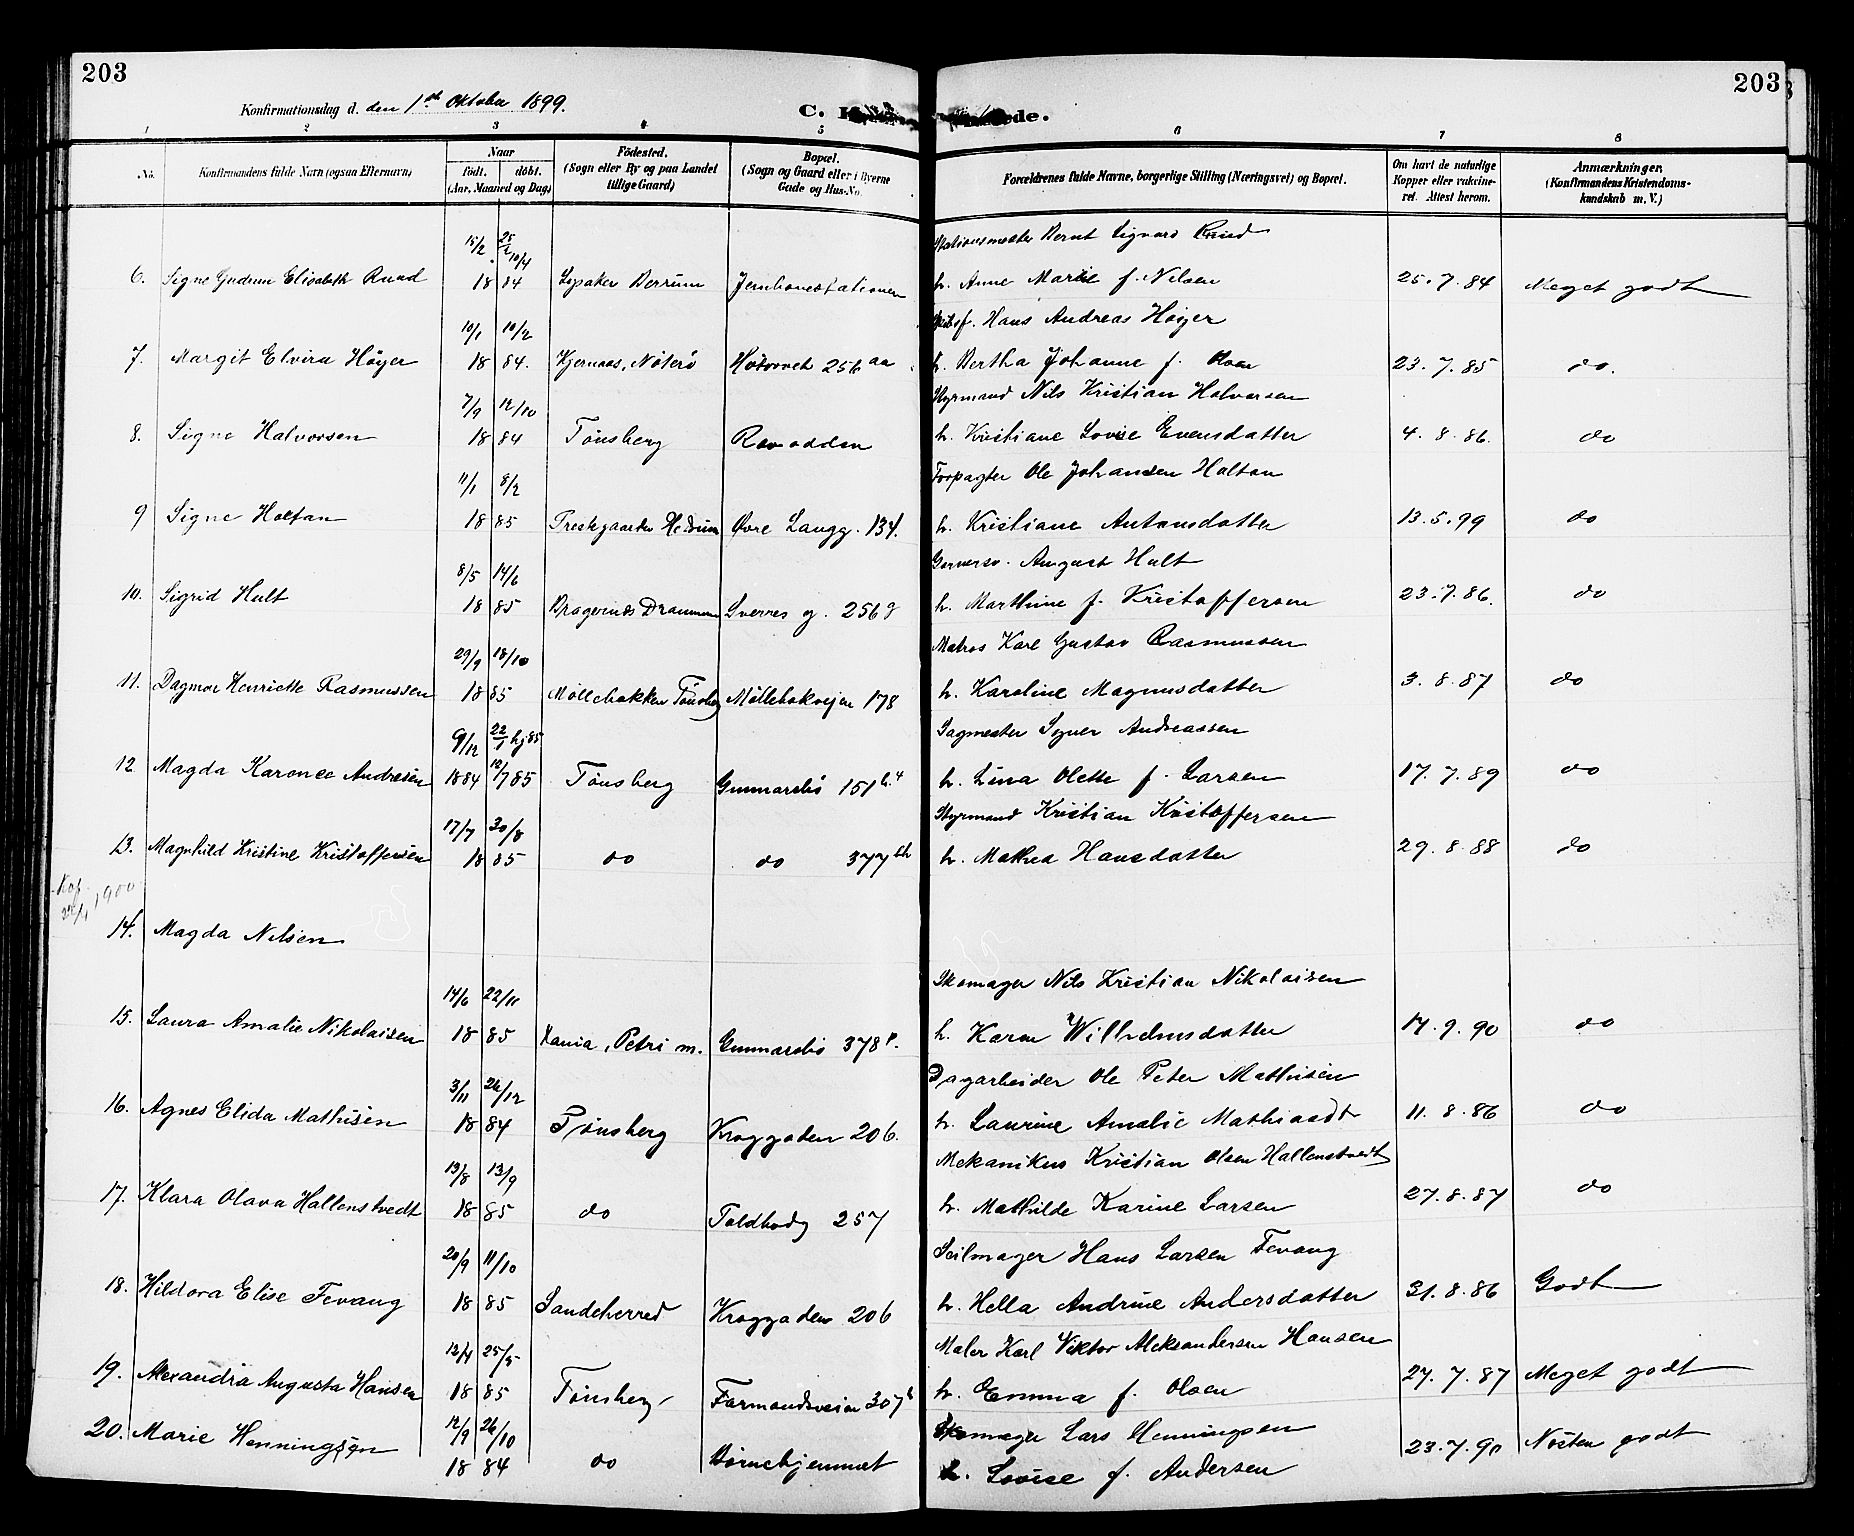 203
203
Konfirmationsdag d. den 1ste Oktober 1899.
C.
1 2 3 4 5 6 7 8
No.
Konfirmandens fulde Navn (ogsaa Efternavn)
Naar
födt. döbt.
(Aar, Maaned og Dag)
Födested.
(Sogn eller By og paa Landet
tillige Gaard)
Bopæl.
(Sogn og Gaard eller i Byerne
Gade og Hus-No.
Forældrenes fulde Navne, borgerlige Stilling (Næringsvei) og Bopæl.
Om havt de naturlige
Kopper eller vakcine-
ret. Attest herom.
Anmærkninger.
(Konfirmandens Kristendoms-
kundskab m. V.)
15/2 25/2 10/4 Stationsmester Bernt Sigvard Ruud
6. Signe Gudrun Elisabeth Ruud 18 84 Lysaker Berrum Jernbanestationen h. Anne Marie f. Nilsen 25.7.84 Meget godt
10/1 10/2 Hans Andreas Høyer
7. Margit Elvira Höyer 18 84. Kjernaas, Nöterö 256 aa h. Bertha Johanne f. Olsen 23.7.85 do.
7/9 12/10 Styrmand Nils Kristian Halvorsen
8. Signe Halvorsen 18 84 Tönsberg Ravnodden h. Kristiane Lovise Evensdatter 4.8.86. do
11/1 8/2 Forpagter Ole Johansen Holtan
9 Signe Holtan 18 85 Prestegaarden Hedrum Övre Langg. 134. h. Kristiane Antonsdatter 13.5.99 do
8/5 14/6 Garversv. August Hult
10. Sigrid Hult 18 85 Bragernæs Drammen Svernes g. 256 g h. Marthine f. Kristoffersen 23.7.86. do
29/9 18/10 Matros Karl Gustav Rasmussen
11. Dagmar Henriette Rasmussen 18 85 Möllebakken Tönsberg Möllebakvejen 178 h. Karoline Magnusdatter 3.8.87 do
9/12 22/1 hj 85 Sagmester Syver Andreassen
12 Magda Karonee Andresen 1884 12/7 85 Tønsberg Gunnarsbö 151 h. 4 h. Lina Olette f. Larsen 17.7.89 do
17/7 30/8 Styrmand Kristian Kristoffersen
13. Magnhild Kristine Kristoffersen 18 85 do do 377 h. Mathea Hansdatter 29.8.88 do
1900
14. Magda Nilsen
14/6 22/11 Skomager Nils Kristian Nikolaisen
15. Laura Amalie Nikolaisen 18 85 Xania, Petri m. Gunnarsbö 378 p. h. Karen Wilhelmsdatter 17.9.90 do
3/11 26/12 Dagarbeider Ole Peter Mathisen
16. Agnes Elida Mathisen 18 84 Tönsberg Kroggaden 206. h. Laurine Amalie Mathiasdt 11.8.86 do
13/8 13/9 Mekanikus Kristian Olsen Hallenstvedt
17. Klara Olava Hallenstvedt 18 85 do Toldbodg 257 h. Mathilde Karine Larsen 27.8.87 do
20/9 11/10 Seilmager Hans Larsen Fevang
18. Hildora Elise Fevang 18 85 Sandeherred Kroggaden 206 h. Hella Andrine Andersdatter 31.8.86 Godt
12/4 25/5 Maler Karl Viktor Aleksandersen Hansen
19. Alexandra Augusta Hansen 18 85 Tönsberg Farmandsveien 307 h. Emma f. Olsen 27.7.87 Meget godt
12/9 26/10 Skomager Lars Henningsen
20. Marie Henningsen 18 84 do Börnehjemmet h. Lovise f. Andersen 23.7.90 Næsten godt